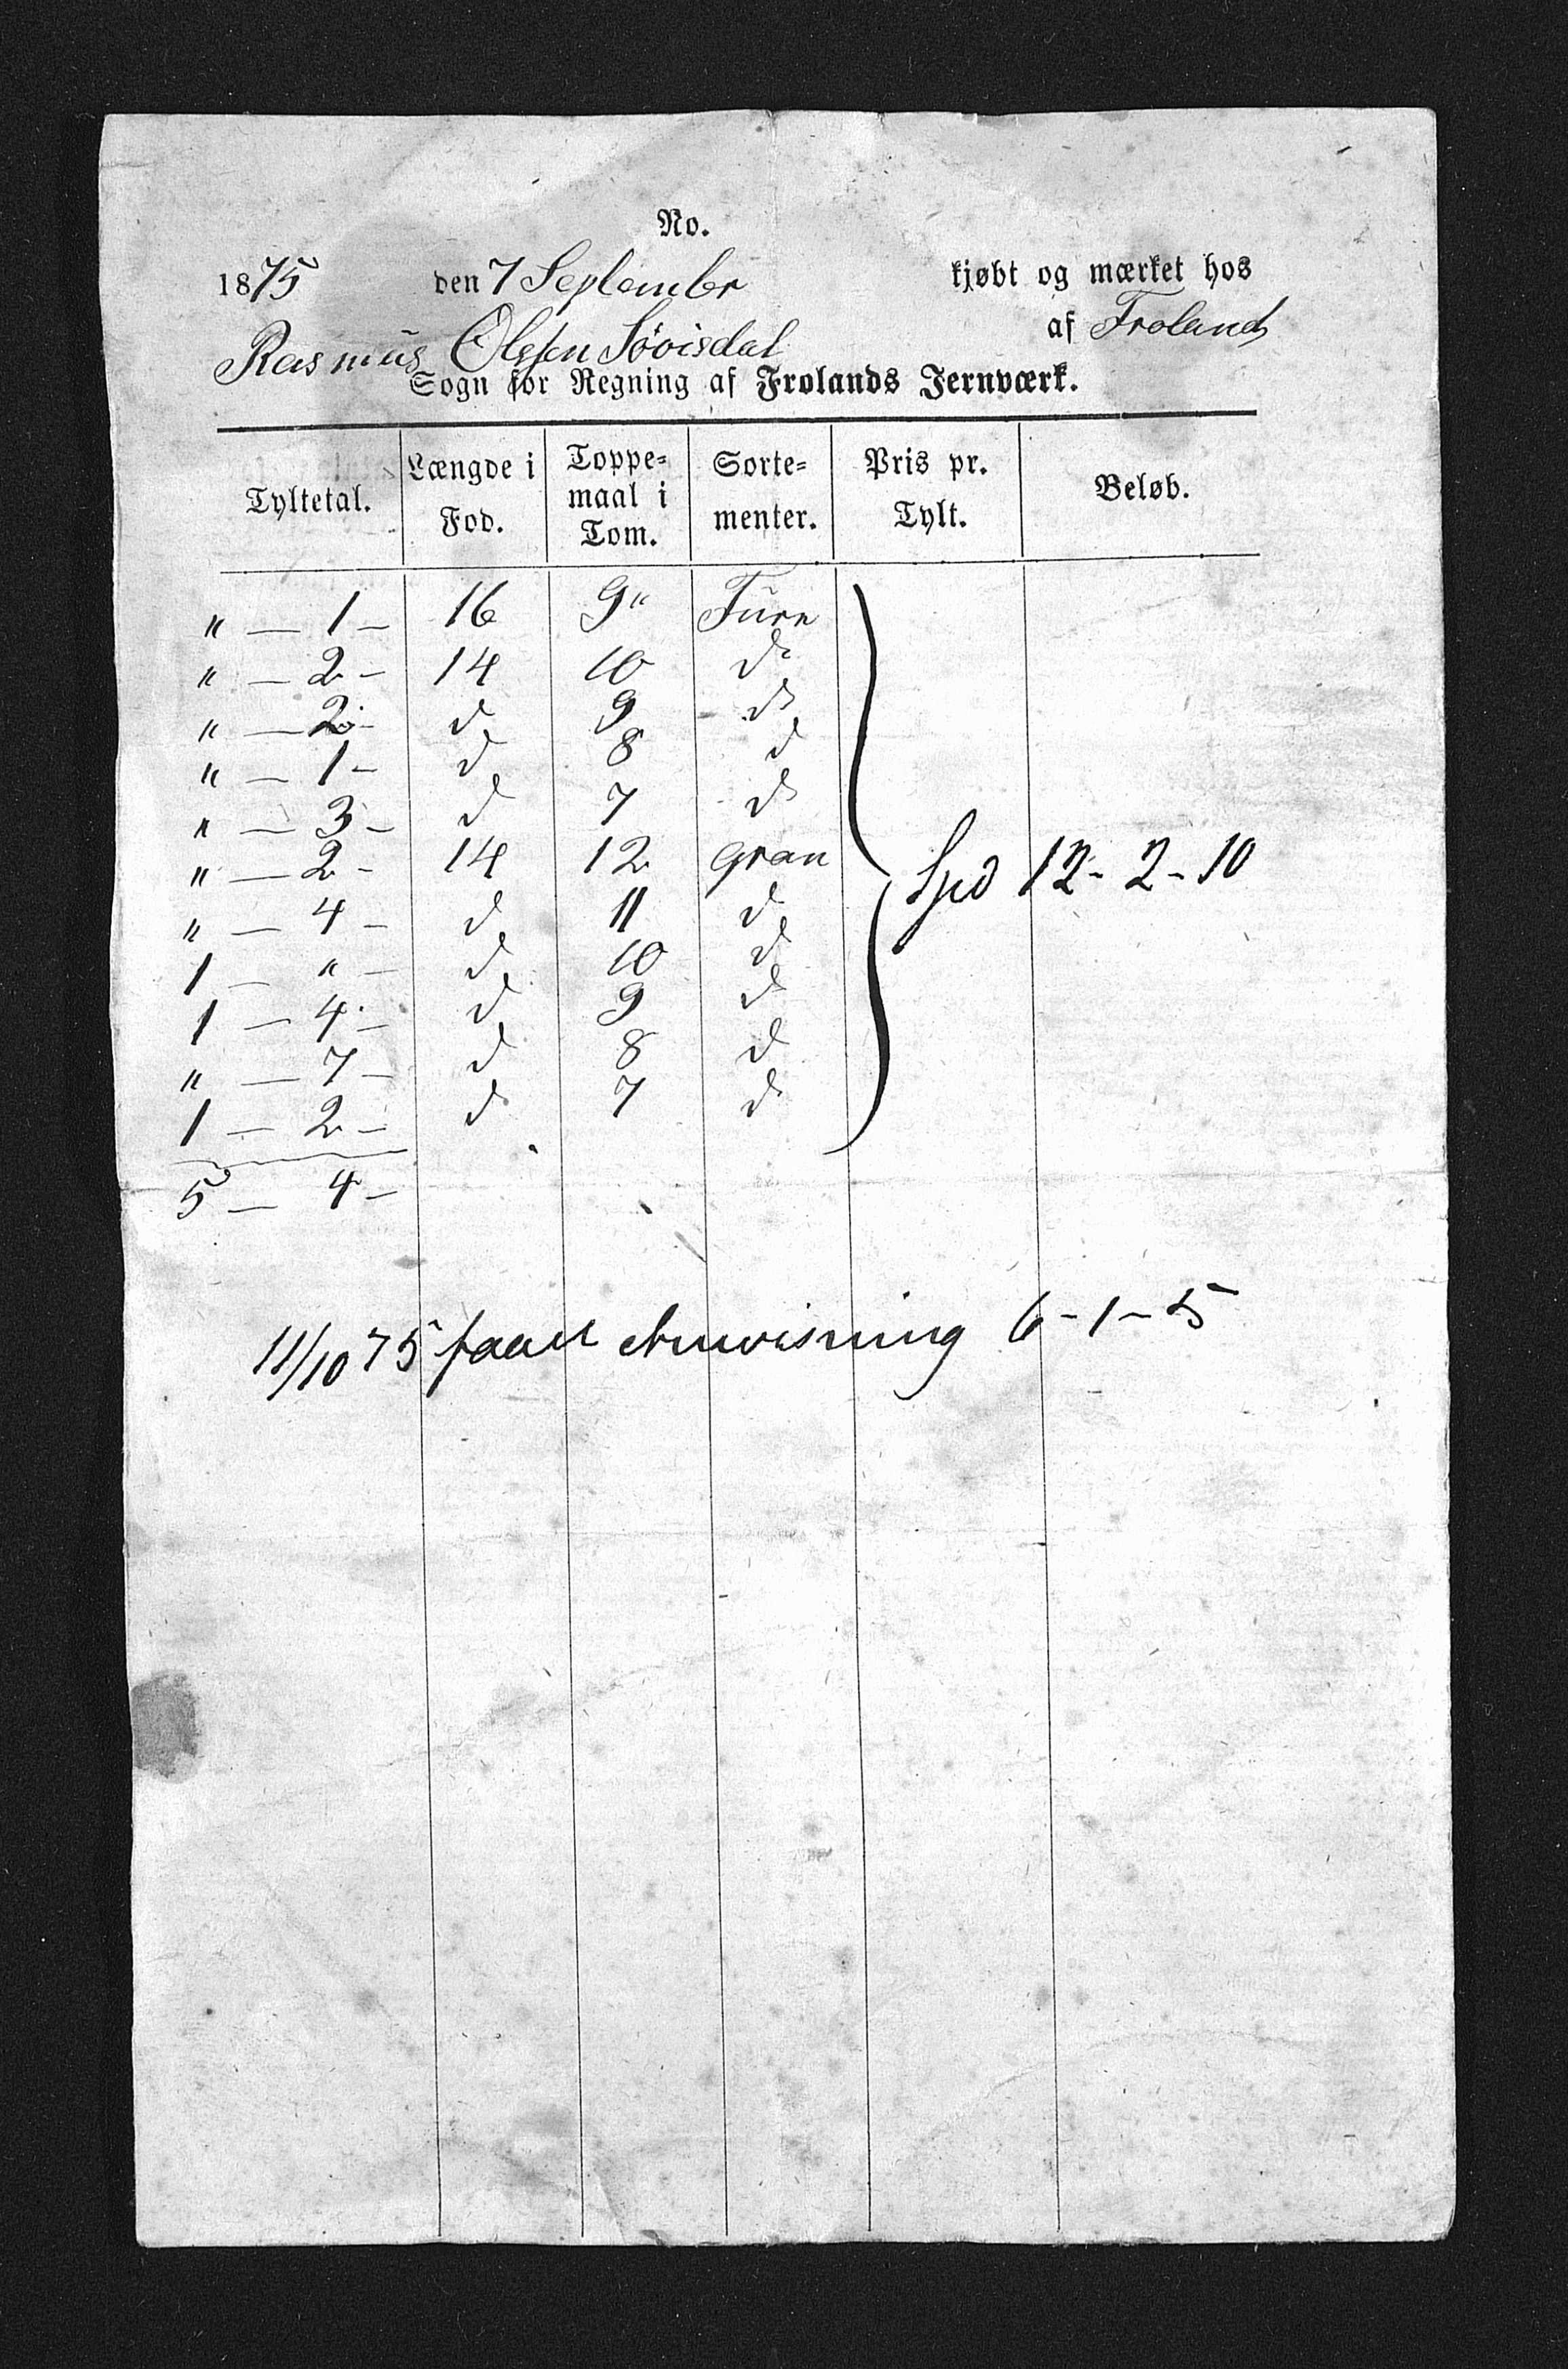 No.
1875 den 7 Septembr kjøbt og mærket hos
Rasmus Olsen Løvisdal af Froland
Sogn for Regning af Frolands Jernværk.
Tyltetal. Længde i Fod. Toppe=maal i Tom. Sorte=menter. Pris pr. Tylt. Beløb.
" — 1 — 16 9" Furu
" — 2 — 14 10 do
" — 2 — do 9 do
" — 1 — do 8 do
" — 3 — do 7 do
" — 2 — 14 12 gran
Spd 12 - 2 - 10
" — 4 — do 11 do
1 — " — do 10 do
1 — 4 — do 9 do
" — 7 — do 8 do
1 — 2 — do 7 do
5 — 4 —
11/10 75 faaet Anvisning 6 - 1 - 5